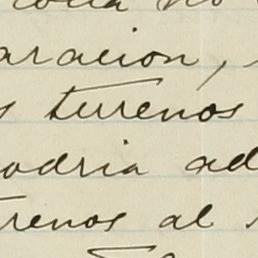 no
aracion,
s terrenos
odria ad
rrenos al